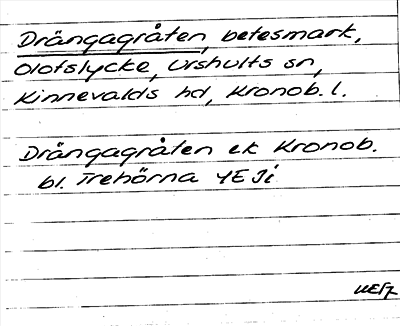 Drängagråten, betesmark,
Olofslycke, Urshults sn,
Kinnevalds hd, Kronob. l.
Drängagråten ek Kronob.
bl. Trehörna 4E Ji